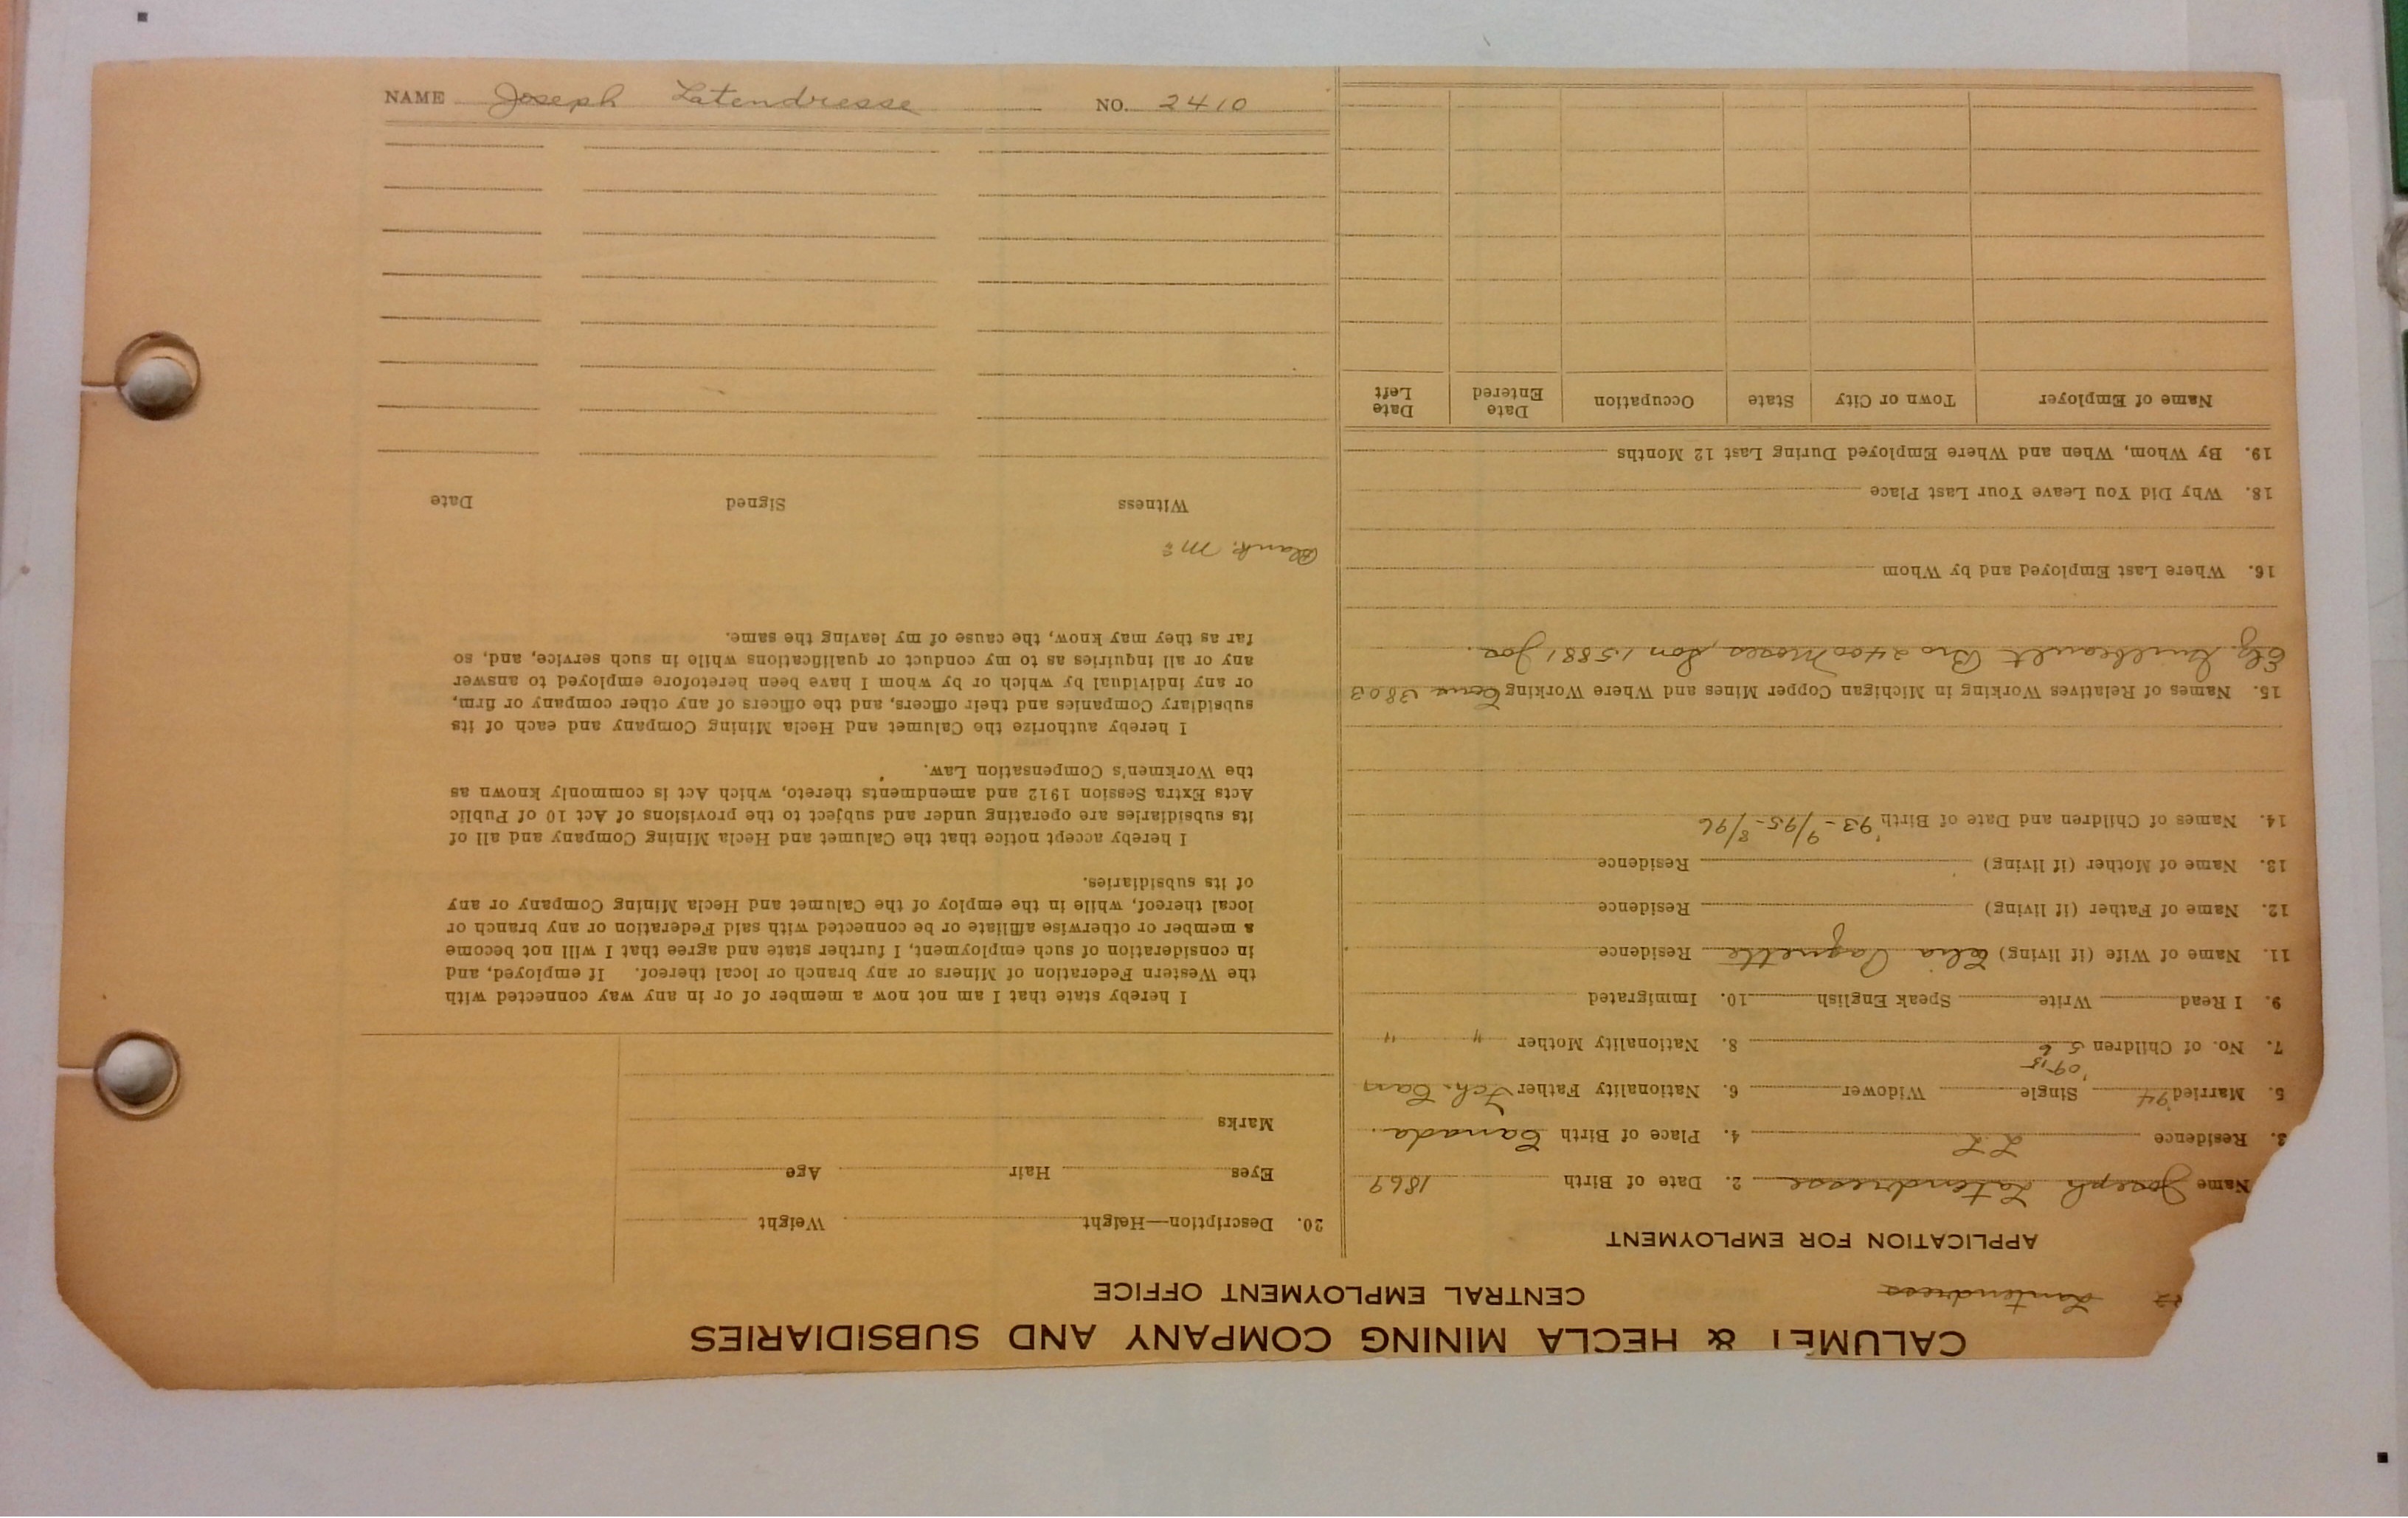 NAME Joseph Latendresse NO. 2410
CALUMET & HECLA MINING COMPANY AND SUBSIDIARIES
CENTRAL EMPLOYMENT OFFICE
Lantendress
APPLICATION FOR EMPLOYMENT
Name Joseph Latendresse 2. Date of Birth 1869
3. Residence LL 4. Place of Birth Canada.
5. Married '94 Single Widower 6. Nationality Father Fch. Can
'09 '15
7. No. of Children 5 6 8. Nationality Mother " "
9. I Read Write Speak English 10. Immigrated
11. Name of Wife (if living) Celia Paquette Residence
12. Name of Father (if living) Residence
13. Name of Mother (if living) Residence
14. Names of Children and Date of Birth '93 - 9/95 - 8/96
15. Names of Relatives Working in Michigan Copper Mines and Where Working Cous 3803
Bro 2400 Moses, Son 15881 Jos.
16. Where Last Employed and by Whom
18. Why Did You Leave Your Last Place
19. By Whom, When and Where Employed During Last 12 Months
Name of Employer Town or City State Occupation Date Entered Date Left
20. Description—Height Weight
Eyes Hair Age
Marks
I hereby state that I am not now a member of or in any way connected with
the Western Federation of Miners or any branch or local thereof. If employed, and
in consideration of such employment, I further state and agree that I will not become
a member or otherwise affiliate or be connected with said Federation or any branch or
local thereof, while in the employ of the Calumet and Hecla Mining Company or any
of its subsidiaries.
I hereby accept notice that the Calumet and Hecla Mining Company and all of
its subsidiaries are operating under and subject to the provisions of Act 10 of Public
Acts Extra Session 1912 and amendments thereto, which Act is commonly known as
the Workmen's Compensation Law.
I hereby authorize the Calumet and Hecla Mining Company and each of its
subsidiary Companies and their officers, and the officers of any other company or firm,
or any individual by which or by whom I have been heretofore employed to answer
any or all inquiries as to my conduct or qualifications while in such service, and, so
far as they may know, the cause of my leaving the same.
Witness Signed Date